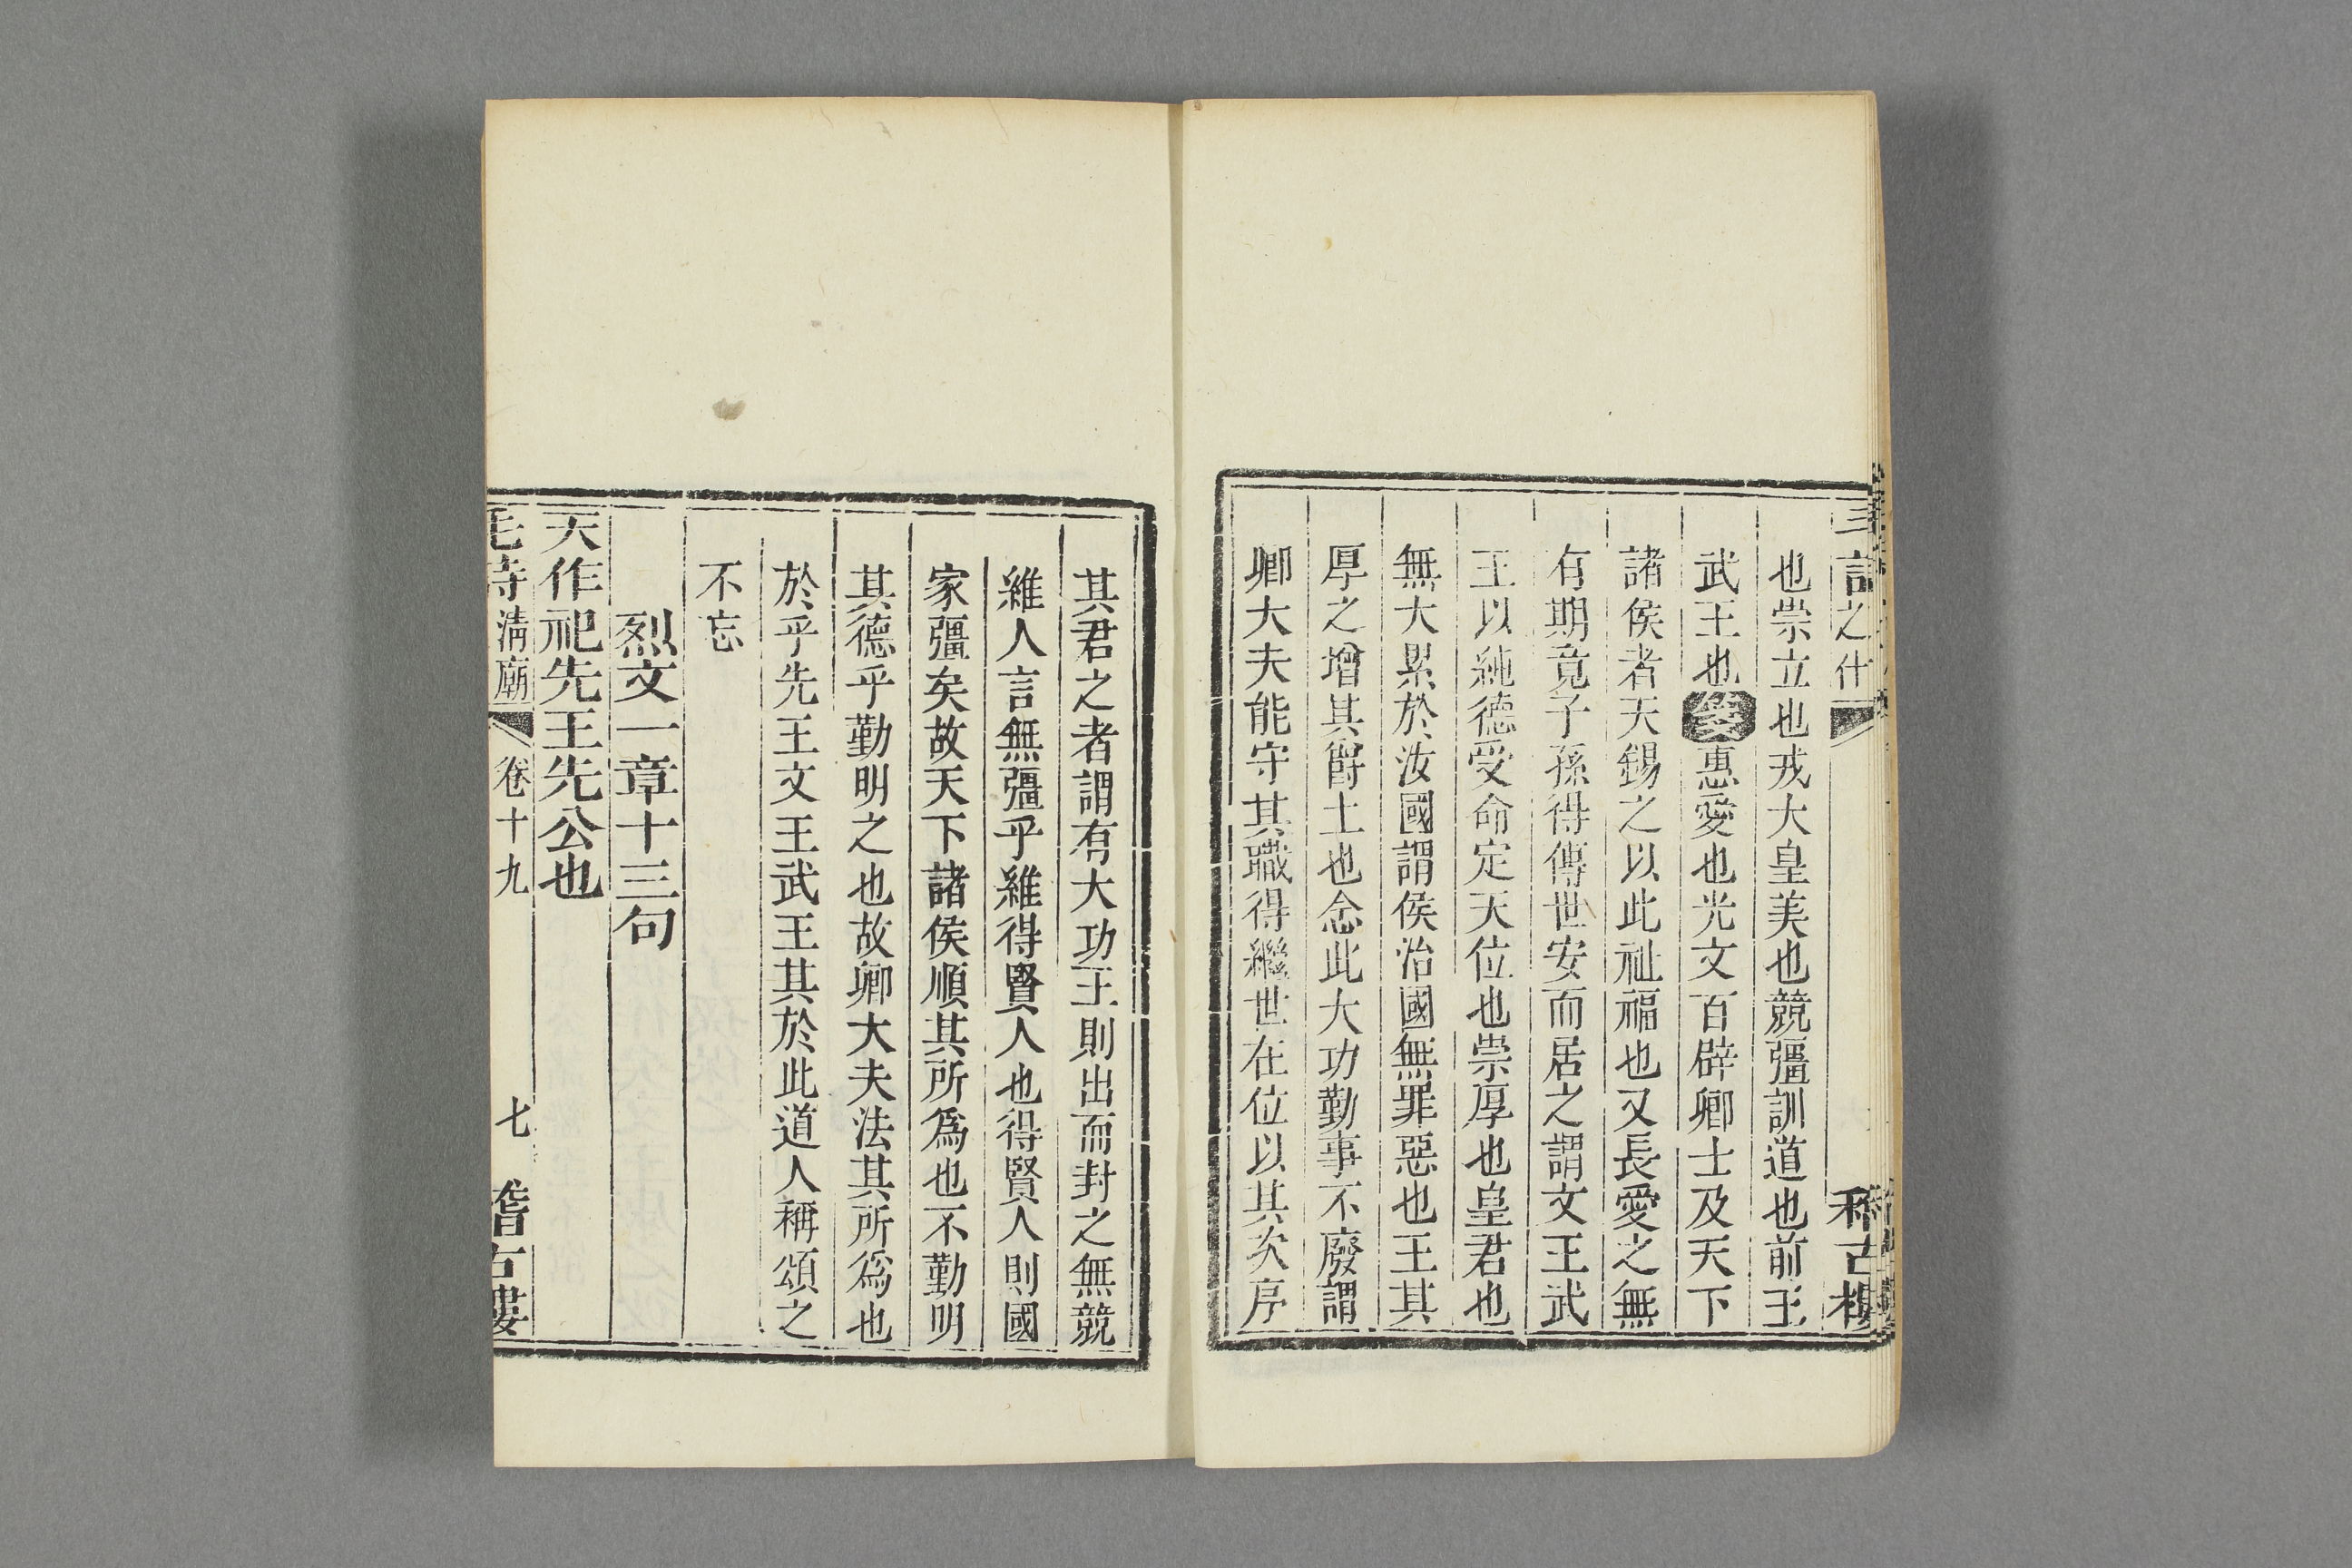 之什
也崇立也戎大皇美也競彊訓道也前王
武王也箋惠愛也光文百辟卿士及天下
諸侯者天錫之以此祉福也又長愛之無
有期竟子孫得傳世安而居之謂文王武
王以純德受命定天位也崇厚也皇君也
無大累於汝國謂侯治國無罪惡也王其
厚之增其爵土也念此大功勤事不廢謂
卿大夫能守其職得繼世在位以其次序
其君之者謂有大功王則出而封之無競
維人言無彊乎維得賢人也得賢人則國
家彊矣故天下諸侯順其所爲也不勤明
其德乎勤明之也故卿大夫法其所爲也
於乎先王文王武王其於此道人稱頌之
不忘
烈文一章十三句
天作祀先王先公也
毛詩淸廟 卷十九 七 稽古樓